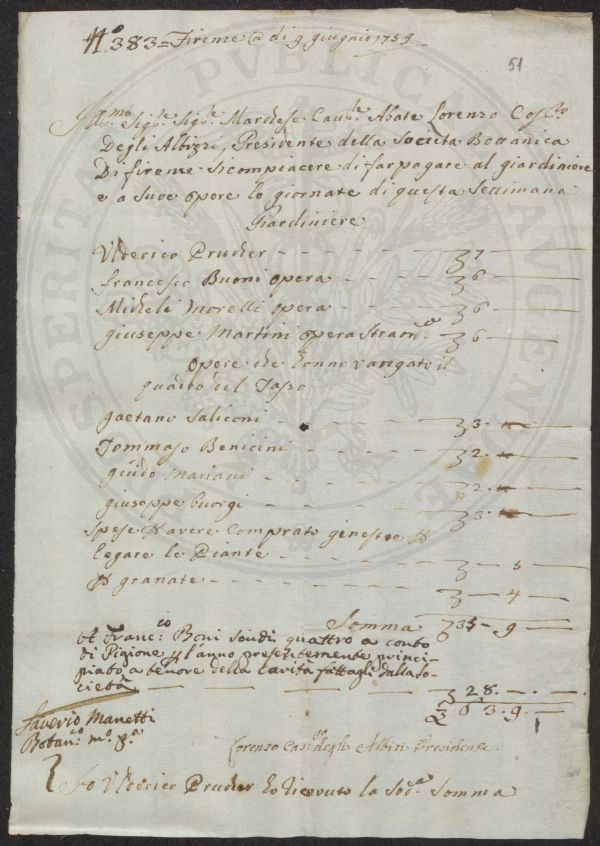 N.º 383 = Firenze @ di 9 giugnio 1759
51
Ill.mo Sig.re Sig.re Marchese Cav.re Abate Lorenzo Cos.mo
Degli Albizzi, Presidente della Società Bottanica
Di firenze si compiacere di far pagare al giardiniere
e a suve opere le giornate di questa Settimana
Giardiniere
Ulderico Prucher - - - 7 —
francesco Buoni opera - - - 6 —
Michele Morelli opera - - - 6 —
giuseppe Martini opera - - - 6 —
opere che hanno vangato il
quadro del Tasso
gaetano Saliconi - - - 3 . —
Tommaso Benicini - - - 2 . —
guido Mariani - - - 2 . —
giuseppe - - - 3 . —
Spese avere Comprato ginestre
legare le Piante - - - 5 —
granate - - - 4 —
Somma 35 - 9 —
A Franc:co Boni scudi quattro a conto
di Pigione l'anno presentemente princi-
piato a tenore della carità fattagli dalla So-
cietà — 28. — . —
63. 9. —
Saverio Manetti
Botan:co
Lorenzo Cos.mo degli Albizi Presidente
Io Ulderico Prucher ho ricevuto la Sod.a Somma
SPERITA PVBLICA ANGENDAE